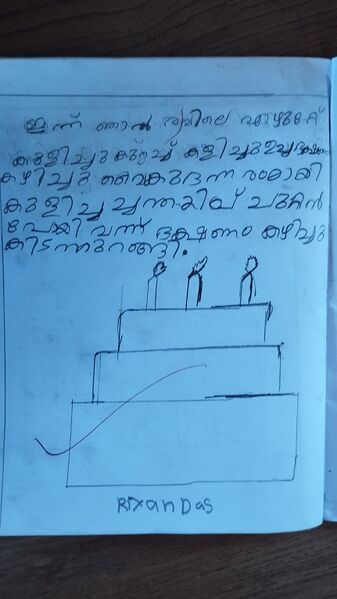 ഇന്ന് ഞാൻ രാവിലെ എഴുമേറ്റ്
കുളിച്ചു കുറച്ച് കളിച്ചു ഉച്ചഭക്ഷണം
കഴിച്ചു വൈകുന്നേരമായി
കുളിച്ചു ചന്തയില് ചുറ്റാൻ
പേയി വന്ന് ഭക്ഷണം കഴിച്ചു
കിടന്നുറങ്ങി.
RIXanDas